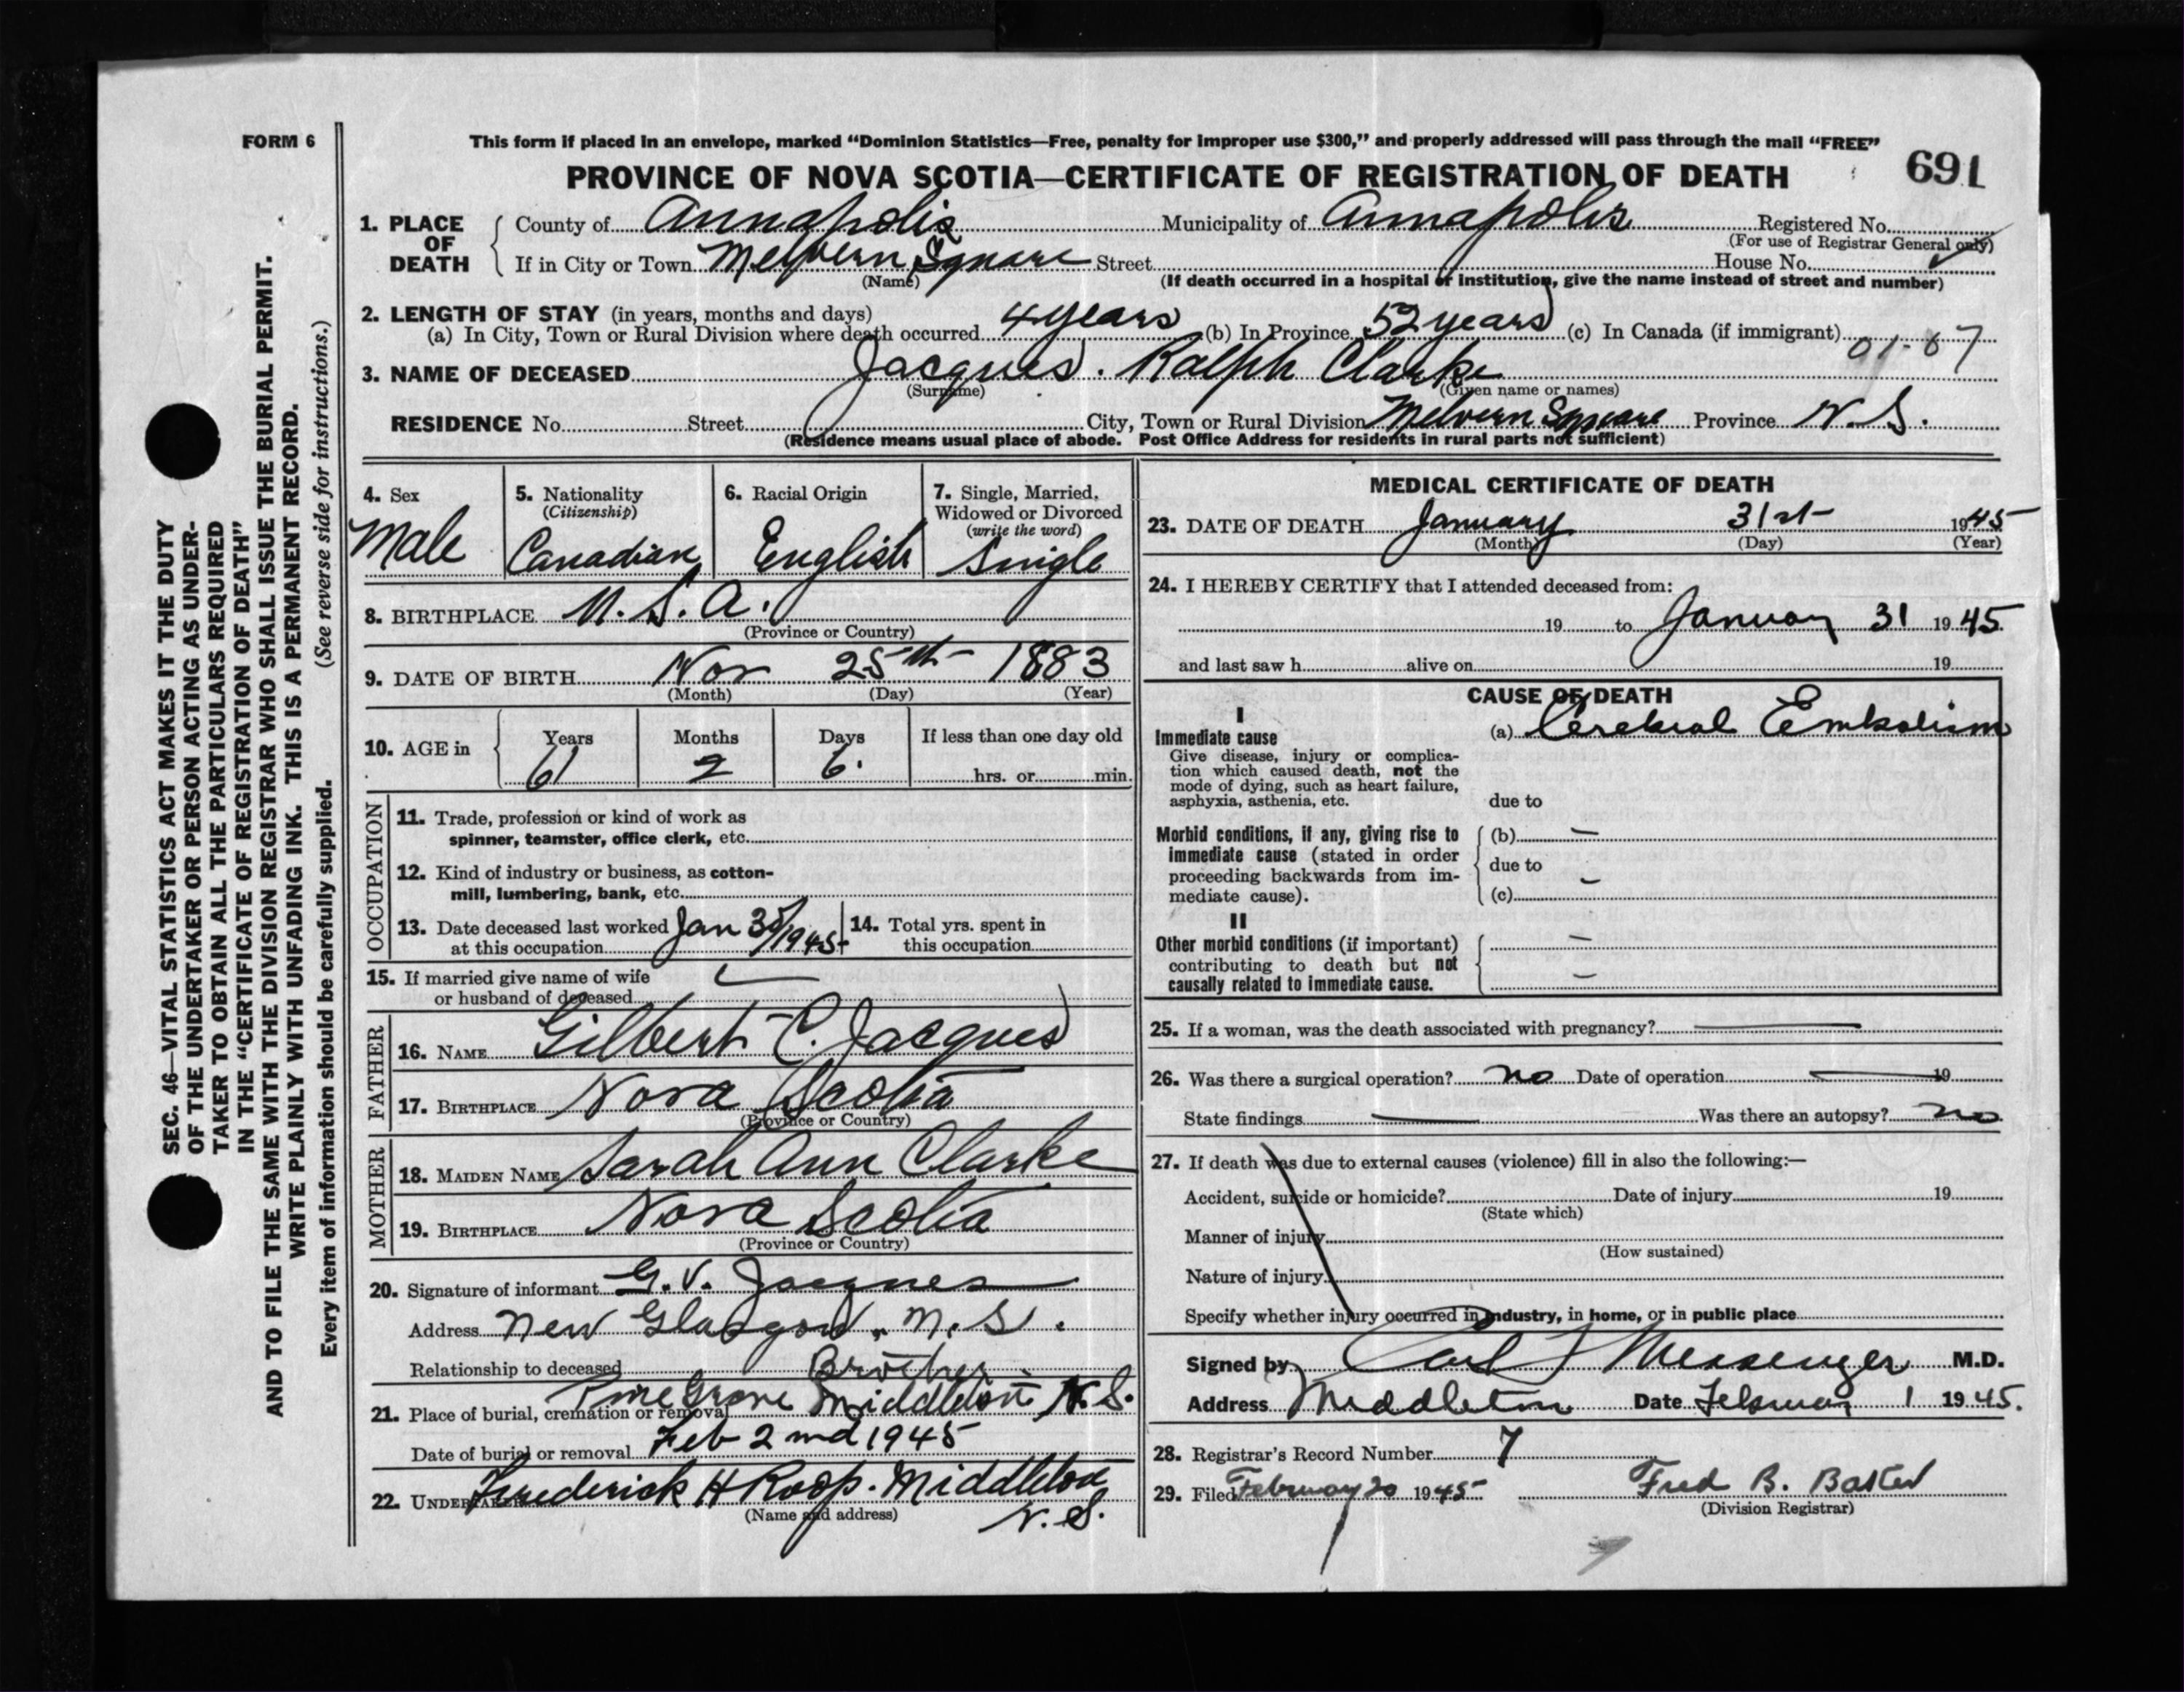 FORM 6
This form if placed in an envelope, marked “Dominion Statistics—Free, penalty for improper use $300,” and properly addressed will pass through the mail “FREE”
PROVINCE OF NOVA SCOTIA—CERTIFICATE OF REGISTRATION OF DEATH
691
1. PLACE OF DEATH
County of Annapolis Municipality of Annapolis Registered No.
(For use of Registrar General only)
If in City or Town Melvern Square Street House No.
(Name) (If death occurred in a hospital or institution, give the name instead of street and number)
2. LENGTH OF STAY (in years, months and days)
(a) In City, Town or Rural Division where death occurred 4 years (b) In Province 52 years (c) In Canada (if immigrant)
01-07
3. NAME OF DECEASED Jacques. Ralph Clarke
(Surname) (Given name or names)
RESIDENCE No. Street City, Town or Rural Division Melvern Square Province N.S.
(Residence means usual place of abode. Post Office Address for residents in rural parts not sufficient)
4. Sex
Male
5. Nationality
(Citizenship)
Canadian
6. Racial Origin
English
7. Single, Married,
Widowed or Divorced
(write the word)
Single
8. BIRTHPLACE U.S.A.
(Province or Country)
9. DATE OF BIRTH Nov 25th 1883
(Month) (Day) (Year)
10. AGE in Years Months Days If less than one day old
61 2 6. hrs. or min.
OCCUPATION
11. Trade, profession or kind of work as
spinner, teamster, office clerk, etc.
12. Kind of industry or business, as cotton-
mill, lumbering, bank, etc.
13. Date deceased last worked
at this occupation Jan 30/1945
14. Total yrs. spent in
this occupation
15. If married give name of wife
or husband of deceased —
FATHER
16. NAME Gilbert C. Jacques
17. BIRTHPLACE Nova Scotia
(Province or Country)
MOTHER
18. MAIDEN NAME Sarah Ann Clarke
19. BIRTHPLACE Nova Scotia
(Province or Country)
20. Signature of informant G.V. Jacques
Address New Glasgow, N.S.
Relationship to deceased Brother
21. Place of burial, cremation or removal Pine Grove Middleton N.S.
Date of burial or removal Feb 2nd 1945
22. UNDERTAKER Frederick H Roop. Middleton
(Name and address) N.S.
MEDICAL CERTIFICATE OF DEATH
23. DATE OF DEATH January 31st 1945
(Month) (Day) (Year)
24. I HEREBY CERTIFY that I attended deceased from:
19 to January 31 1945
and last saw h alive on 19
CAUSE OF DEATH
I
Immediate cause
Give disease, injury or complica-
tion which caused death, not the
mode of dying, such as heart failure,
asphyxia, asthenia, etc.
(a) Cerebral Embolism
due to
Morbid conditions, if any, giving rise to
immediate cause (stated in order
proceeding backwards from im-
mediate cause).
(b) —
due to
(c) —
II
Other morbid conditions (if important)
contributing to death but not
causally related to immediate cause.
—
—
25. If a woman, was the death associated with pregnancy? —
26. Was there a surgical operation? no Date of operation — 19
State findings — Was there an autopsy? no
27. If death was due to external causes (violence) fill in also the following:—
Accident, suicide or homicide? Date of injury 19
(State which)
Manner of injury
(How sustained)
Nature of injury
Specify whether injury occurred in industry, in home, or in public place
Signed by Messenger M.D.
Address Middleton Date February 1 1945.
28. Registrar's Record Number 7
29. Filed February 20 1945 Fred B.
(Division Registrar)
SEC. 46—VITAL STATISTICS ACT MAKES IT THE DUTY
OF THE UNDERTAKER OR PERSON ACTING AS UNDER-
TAKER TO OBTAIN ALL THE PARTICULARS REQUIRED
IN THE “CERTIFICATE OF REGISTRATION OF DEATH”
AND TO FILE THE SAME WITH THE DIVISION REGISTRAR WHO SHALL ISSUE THE BURIAL PERMIT.
WRITE PLAINLY WITH UNFADING INK. THIS IS A PERMANENT RECORD.
Every item of information should be carefully supplied. (See reverse side for instructions.)